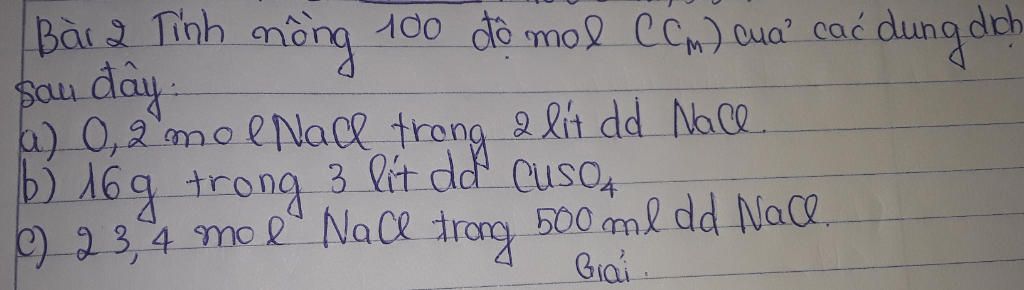 Bài 2 Tính nồng 100 độ mol (CM) của các dung dịch
sau đây:
a) 0,2 mol NaCl trong 2 lít dd NaCl.
b) 16g trong 3 lít dd CuSO4
c) 23,4 mol NaCl trong 500 ml dd NaCl.
Giải.